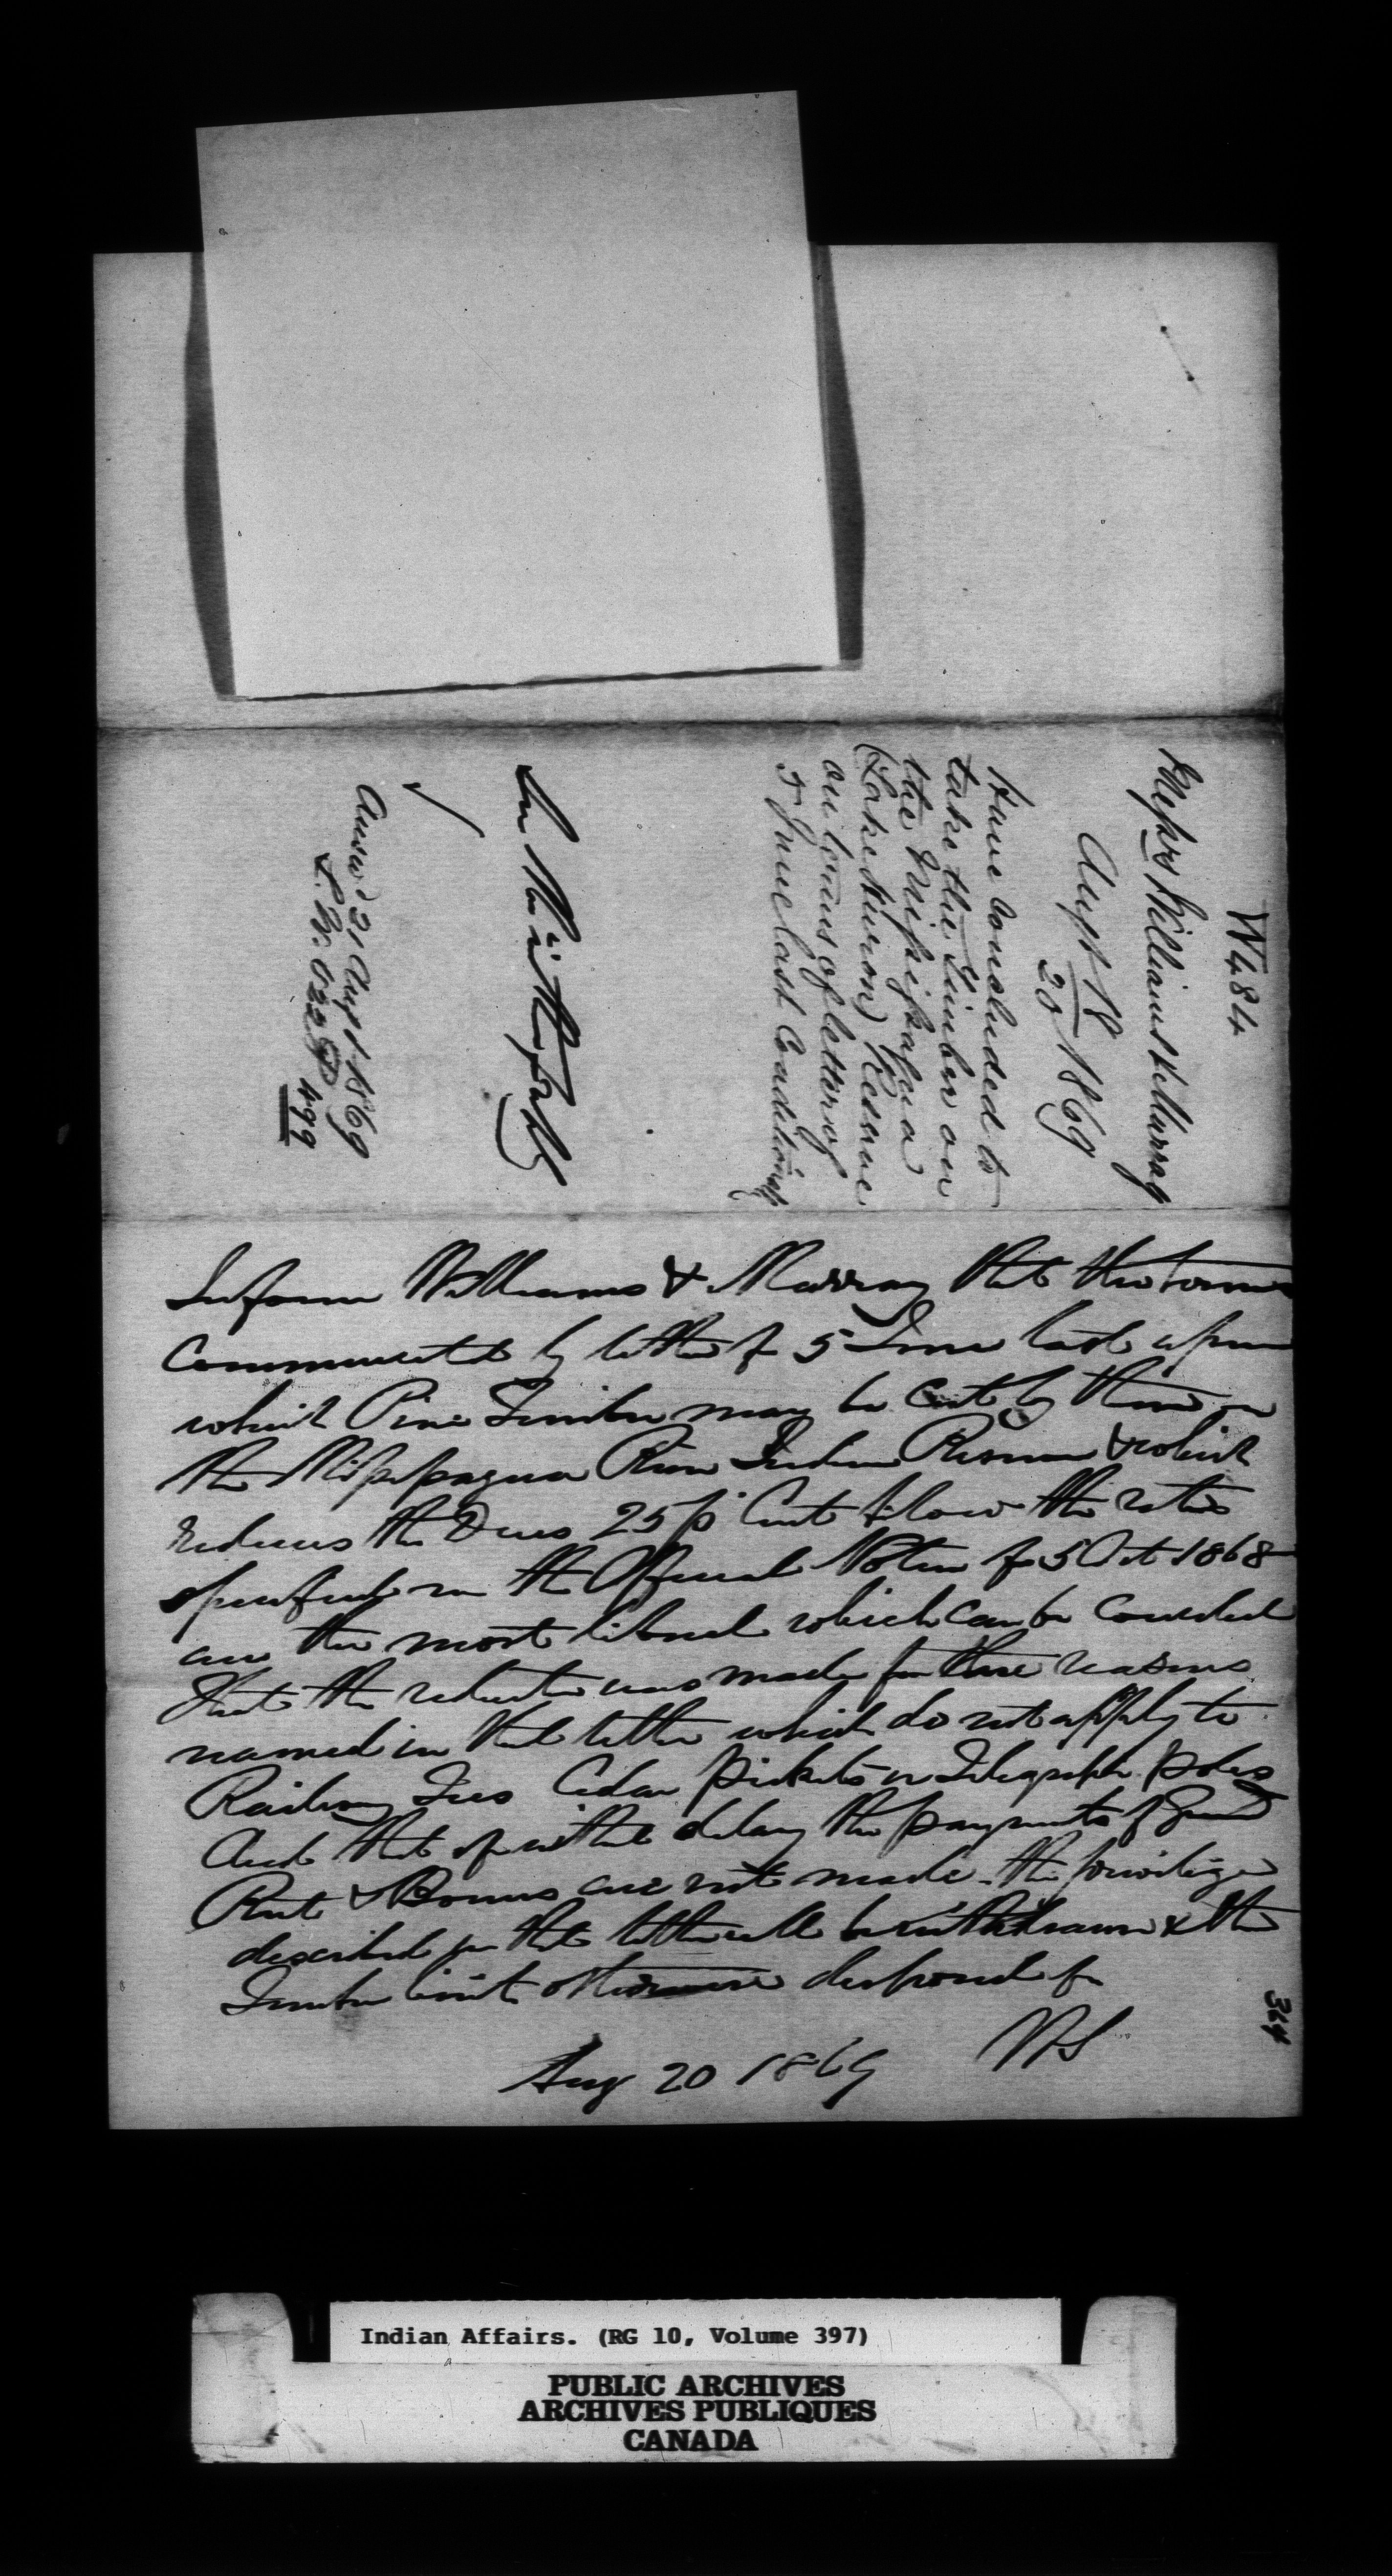 W484
Messrs Williams & Murray
Augt 18/20 1869
Have concluded to
take the Timber on
the Missisagua
(Lake Huron) Reserve
on terms of letter of
5 June last Conditionally
Mr
✓
Answd 21 Augt 1869
L. B. 499
Inform Williams & Murray that the terms
Communicated by letter of 5 June last upon
which Pine Timber may be Cut by them on
the Missisagua River Indian Reserve & which
reduces the Dues 25 p Cent below the rates
specified in the Official Notice of 5 Oct 1868
are the most liberal which can be conceded
That the reduction was made for three reasons
named in that letter which do not apply to
Railway Ties Cedar Pickets or Telegraph poles
And that if without delay the payments of Ground
Rent & Bonus are not made the privilege
described in that letter will be withdrawn & the
Timber limit otherwise disposed of
Aug 20 1869
364
Indian Affairs. (RG 10, Volume 397)
PUBLIC ARCHIVES
ARCHIVES PUBLIQUES
CANADA